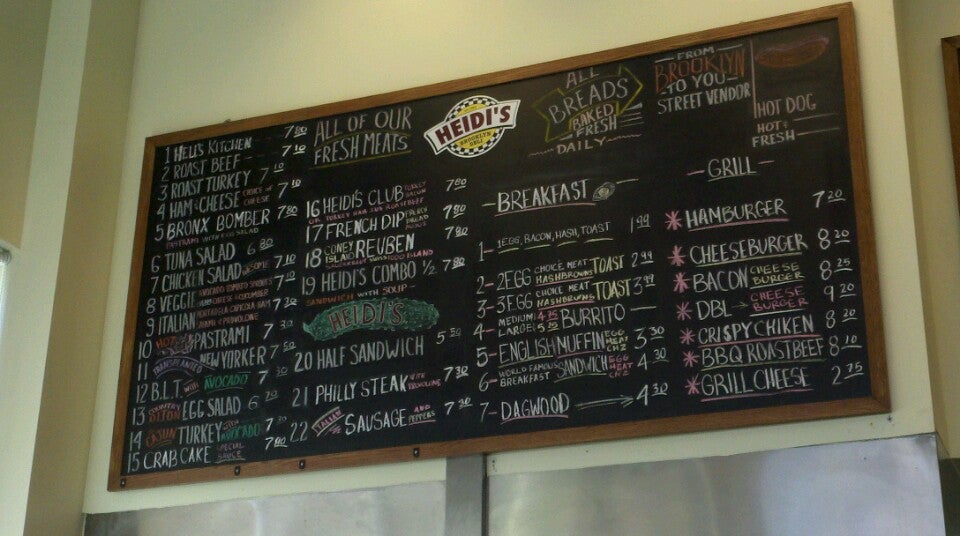 1 HELL'S KITCHEN 7.80
2 ROAST BEEF 7.10
3 ROAST TURKEY 7.10
4 HAM & CHEESE CHOICE OF CHEESE 7.10
5 BRONX BOMBER 7.80
PASTRAMI WITH EGG SALAD
6 TUNA SALAD 6.80
7 CHICKEN SALAD AWESOME 7.10
8 VEGGIE AVOCADO TOMATO SPROUTS
HAVARTI CHEESE & CUCUMBER
9 ITALIAN
SALAMI & PROVOLONE
10 HOT PASTRAMI 7.30
11 TRANSPLANTED NEW YORKER 7.50
12 B.L.T. WITH AVOCADO 7.30
13 COUNTRY DIJON EGG SALAD 6.70
14 CAJUN TURKEY WITH AVOCADO 7.80
15 CRAB CAKE SPECIAL SAUCE 7.80
ALL OF OUR
FRESH MEATS
16 HEIDI'S CLUB TURKEY BACON 7.80
OR TURKEY HAM AND ROAST BEEF
17 FRENCH DIP FRENCH BREAD AUJUS 7.80
18 CONEY ISLAND REUBEN 7.80
SAUERKRAUT SWISS 1000 ISLAND
19 HEIDI'S COMBO 1/2 7.80
SANDWICH WITH SOUP
HEIDI'S
20 HALF SANDWICH 5.50
21 PHILLY STEAK WITH PROVOLONE 7.30
22 ITALIAN SAUSAGE AND PEPPERS 7.30
HEIDI'S
BROOKLYN DELI
ALL
BREADS
BAKED
FRESH
DAILY
BREAKFAST
1- 1 EGG, BACON, HASH, TOAST 1.99
2- 2 EGG CHOICE MEAT HASHBROWNS TOAST 2.99
3- 3 EGG CHOICE MEAT HASHBROWNS TOAST 3.99
4- MEDIUM 4.75 LARGE 5.75 BURRITO
5- ENGLISH MUFFIN EGG MEAT CHZ 3.30
6- WORLD FAMOUS BREAKFAST SANDWICH EGG MEAT CHZ 4.30
7- DAGWOOD → 4.30
FROM
BROOKLYN
TO YOU
STREET VENDOR
HOT DOG
HOT &
FRESH
GRILL
* HAMBURGER 7.20
* CHEESEBURGER 8.20
* BACON CHEESE BURGER 8.25
* DBL → CHEESE BURGER 9.20
* CRISPY CHIKEN 8.20
* BBQ ROAST BEEF 8.10
* GRILL CHEESE 2.75